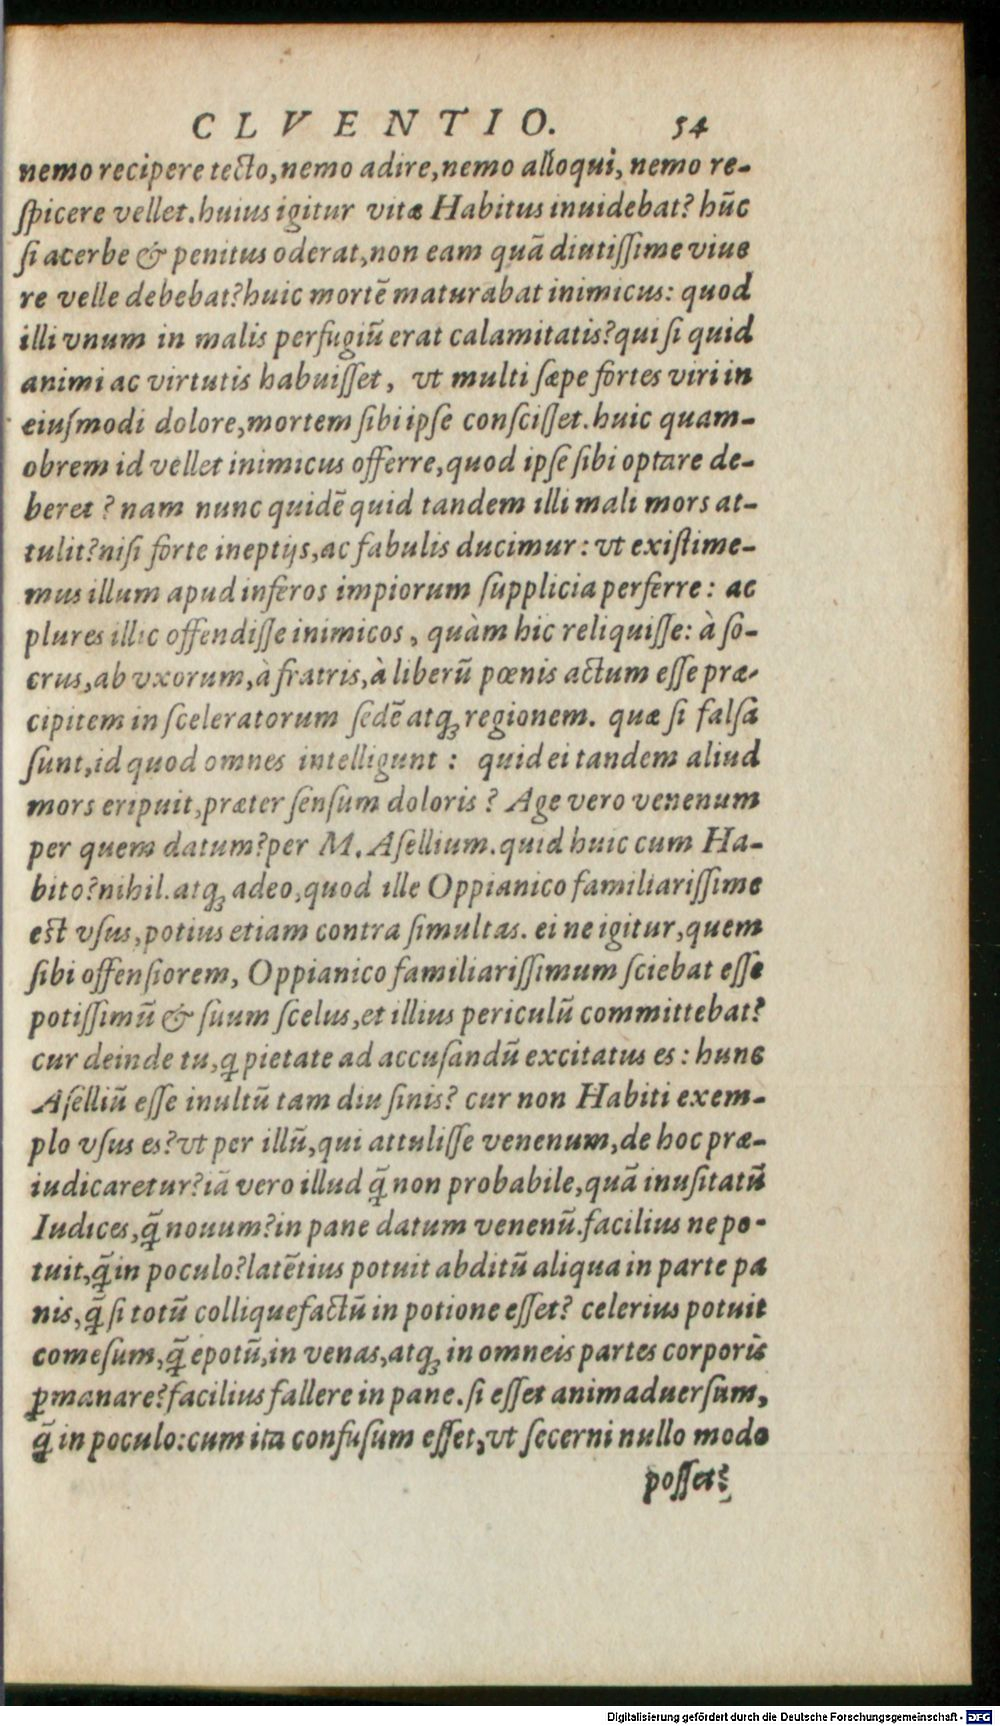 CLVENTIO. 54
nemo recipere tecto, nemo adire, nemo alloqui, nemo re-
ſpicere vellet. huius igitur vitæ Habitus inuidebat? hūc
ſi acerbe & penitus oderat, non eam quā diutiſſime viue
re velle debebat? huic mortē maturabat inimicus: quod
illi vnum in malis perfugiū erat calamitatis? qui ſi quid
animi ac virtutis habuiſſet, vt multi ſæpe fortes viri in
eiuſmodi dolore, mortem ſibi ipſe conſciſſet. huic quam-
obrem id vellet inimicus offerre, quod ipſe ſibi optare de-
beret? nam nunc quidē quid tandem illi mali mors at-
tulit? niſi forte ineptijs, ac fabulis ducimur: vt exiſtime-
mus illum apud inferos impiorum ſupplicia perferre: ac
plures illic offendiſſe inimicos, quàm hic reliquiſſe: à ſo-
crus, ab vxorum, à fratris, à liberū pœnis actum eſſe præ-
cipitem in ſceleratorum ſedē atq; regionem. quæ ſi falſa
ſunt, id quod omnes intelligunt: quid ei tandem aliud
mors eripuit, præter ſenſum doloris? Age vero venenum
per quem datum? per M. Aſellium. quid huic cum Ha-
bito? nihil. atq; adeo, quod ille Oppianico familiariſſime
est vſus, potius etiam contra ſimultas. ei ne igitur, quem
ſibi offenſiorem, Oppianico familiariſſimum ſciebat eſſe
potiſſimū & ſuum ſcelus, et illius periculū committebat?
cur deinde tu, q̄ pietate ad accuſandū excitatus es: hunc
Aſelliū eſſe inultū tam diu ſinis? cur non Habiti exem-
plo vſus es? vt per illū, qui attuliſſe venenum, de hoc præ-
iudicaretur? iā vero illud q̄ non probabile, quā inuſitatū
Iudices, q̄ nouum? in pane datum venenū. facilius ne po-
tuit, q̄ in poculo? latētius potuit abditū aliqua in parte pa
nis, q̄ ſi totū colliquefactū in potione eſſet? celerius potuit
comeſum, q̄ epotū, in venas, atq; in omneis partes corporis
ꝑmanare? facilius fallere in pane. ſi eſſet animaduerſum,
q̄ in poculo: cum ita confuſum eſſet, vt ſecerni nullo modo
poſſet?
Digitalisierung gefördert durch die Deutsche Forschungsgemeinschaft - DFG